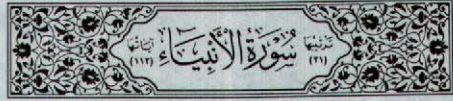 ترتيبها (٢١) سُورَةُ الأَنْبِيَاءِ آياتها (١١٢)